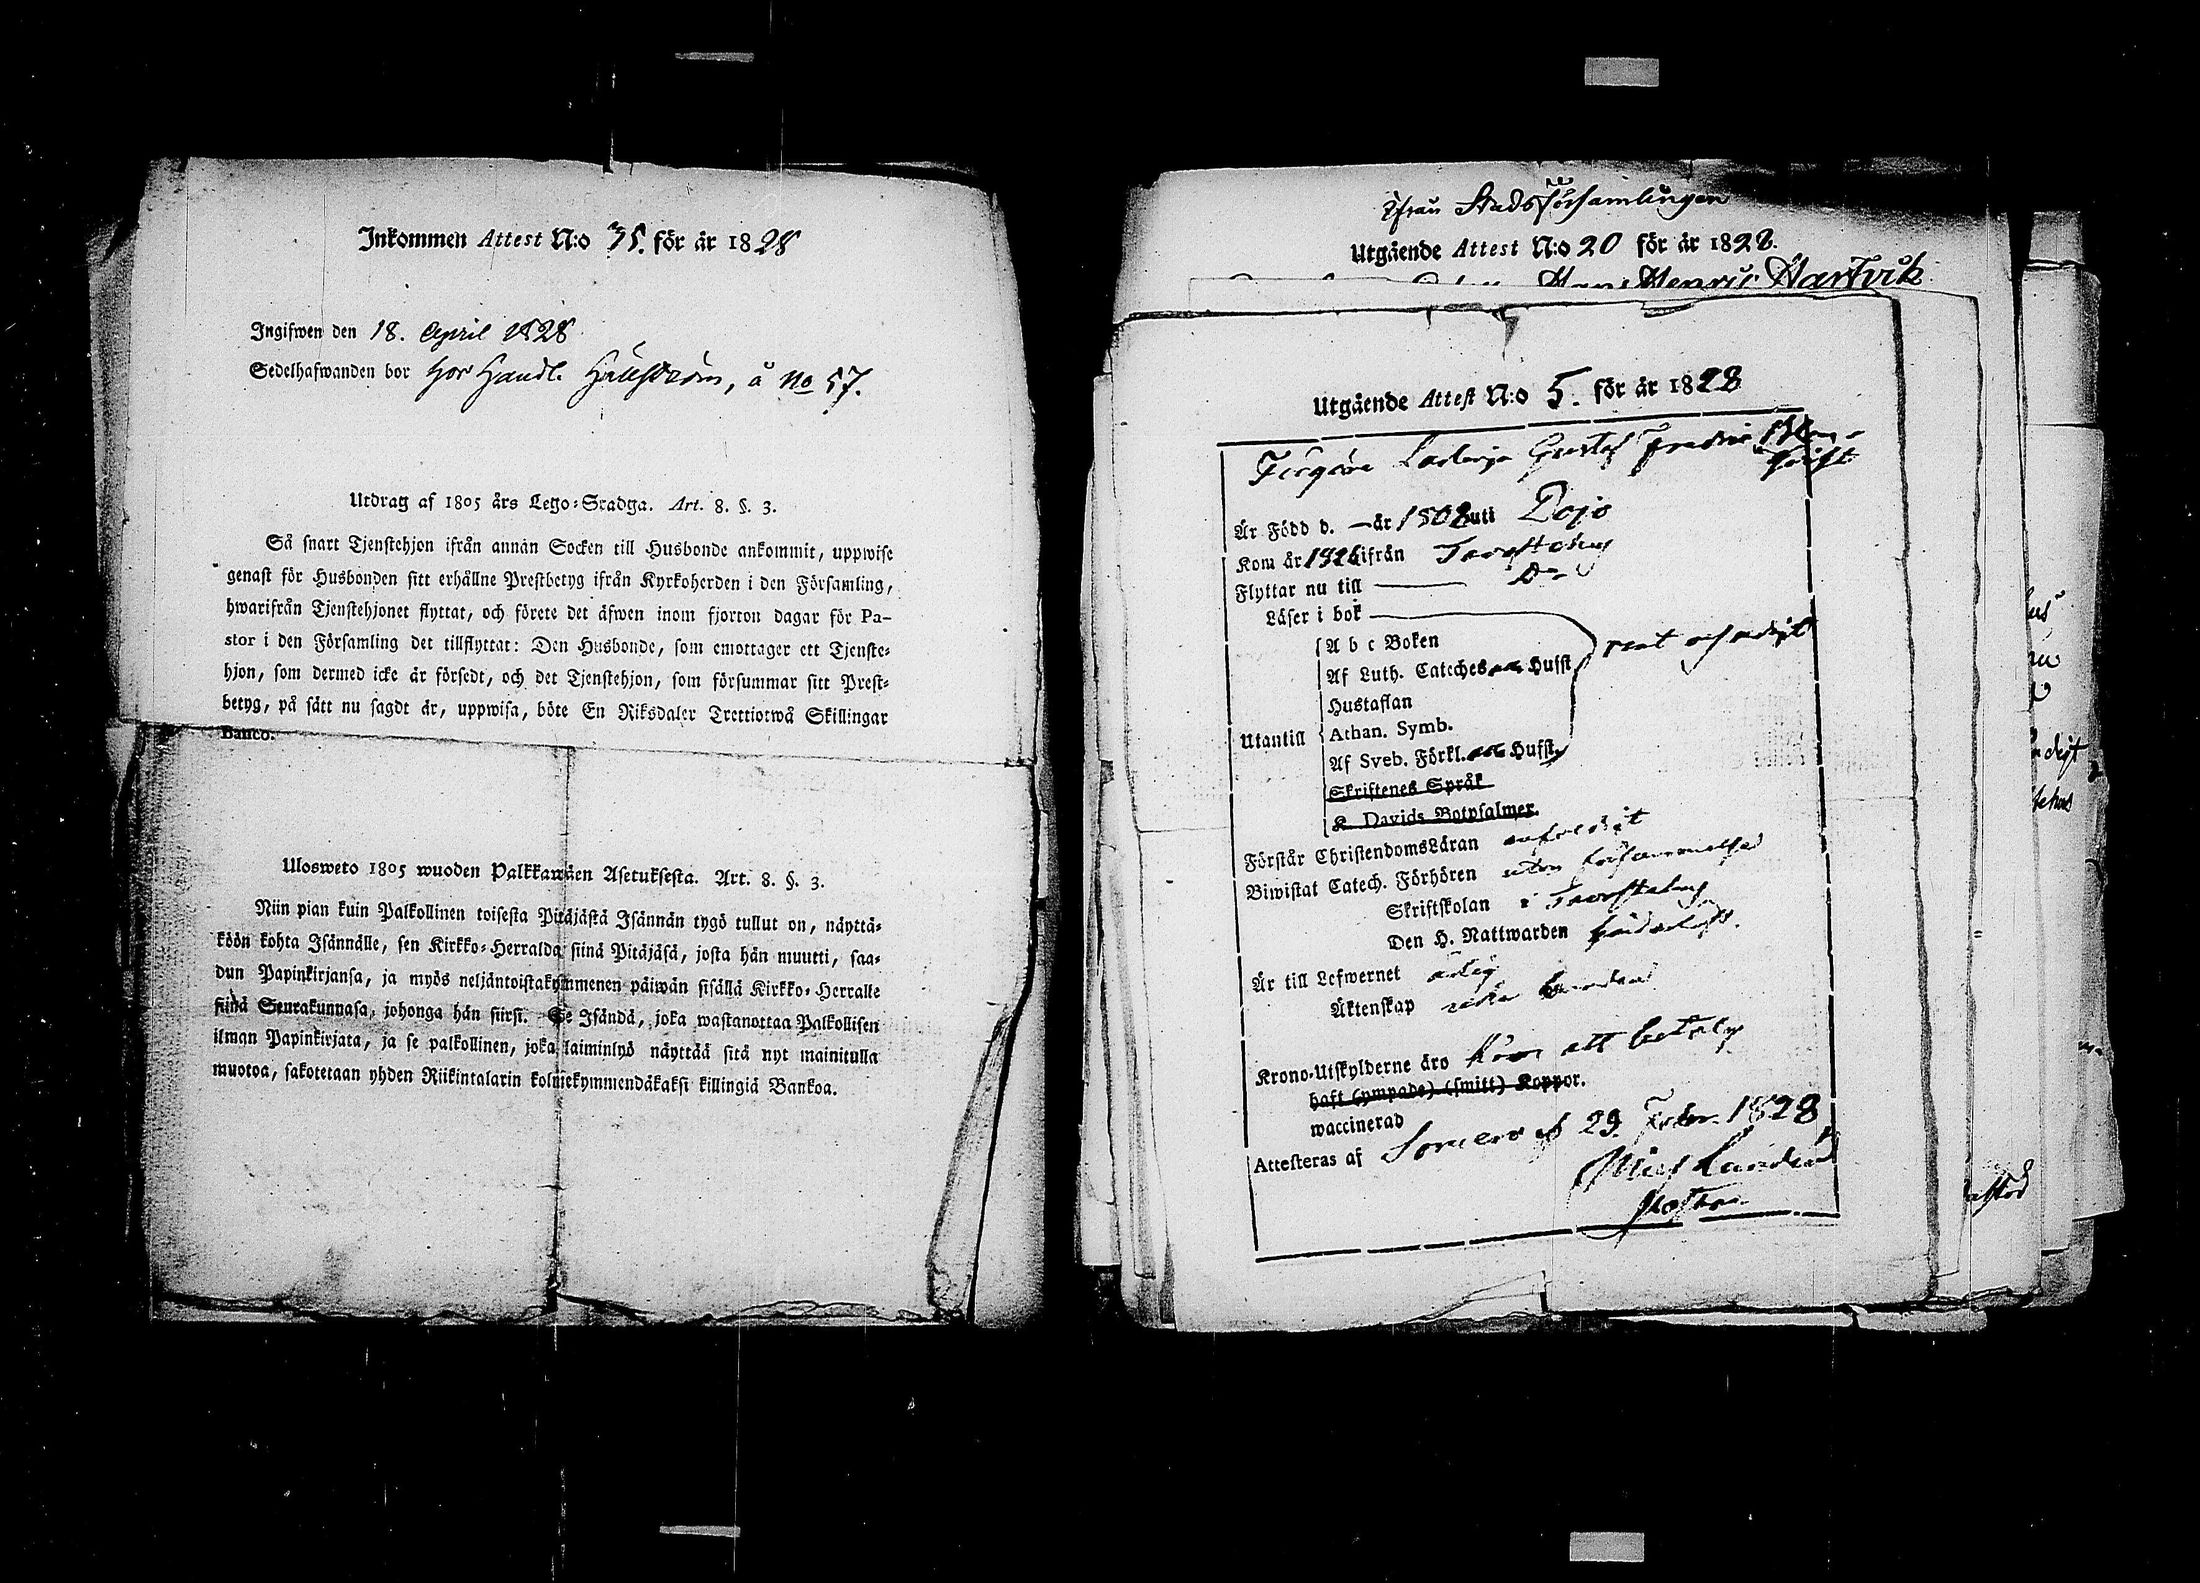 Inkommen Attest N:o 35. för år 1828
Ingifwen den 18. April 1828
Sedelhafwanden bor hos Handl. Hällström, å No 57.
Utdrag af 1805 års Lego-Stadga. Art. 8. §. 3.
Så snart Tjenstehjon ifrån annan Socken till Husbonde ankommit, uppwise
genast för Husbonden sitt erhållne Prestbetyg ifrån Kyrkoherden i den Församling,
hwarifrån Tjenstehjonet flyttat, och förete det äfwen inom fjorton dagar för Pa-
stor i den Församling det tillflyttat: Den Husbonde, som emottager ett Tjenste-
hjon, som dermed icke är försedt, och det Tjenstehjon, som försummar sitt Prest-
betyg, på sätt nu sagdt är, uppwisa, böte En Riksdaler Trettiotwå Skillingar
Banco.
Ulosweto 1805 wuoden Palkkawäen Asetuksesta. Art. 8. §. 3.
Niin pian kuin Palkollinen toisesta Pitäjästä Isännän tygö tullut on, näyttä-
köön kohta Isännälle, sen Kirkko-Herralda siinä Pitäjäsä, josta hän muutti, saa-
dun Papinkirjansa, ja myös neljäntoistakymmenen päiwän sisällä Kirkko-Herralle
siinä Seurakunnasa, johonga hän siirsi. Se Isändä, joka wastanottaa Palkollisen
ilman Papinkirjata, ja se palkollinen, joka laiminlyö näyttää sitä nyt mainitulla
muotoa, sakotetaan yhden Riikintalarin kolmekymmendäkaksi killingiä Bankoa.
Ifrån Stadsförsamlingen
Utgående Attest N:o 20 för år 1828.
Henric Hartvik
Utgående Attest N:o 5. för år 1828
Gustaf Fredric
Är Född d. — år 1808 uti Lojo
Kom år 1826 ifrån Tavastehus
Flyttar nu till — Do
Läser i bok
A b c Boken
Af Luth. Cateches Husst rent och redigt
Hustaflan
Utantill Athan. Symb.
Af Sveb. Förkl. Husst.
Skriftenes Språk
K. Davids Botpsalmer.
Förstår ChristendomsLäran enfaldigt
Biwistat Catech. Förhören utan försummelse
Skriftskolan i Tavastehus
Den H. Nattwarden
Är till Lefwernet ärlig
Äktenskap
Krono-Utskylderne äro att betala
haft (ympade) (smitt) Koppor.
waccinerad
Attesteras af Somero d 29. Febr. 1828
Pastor